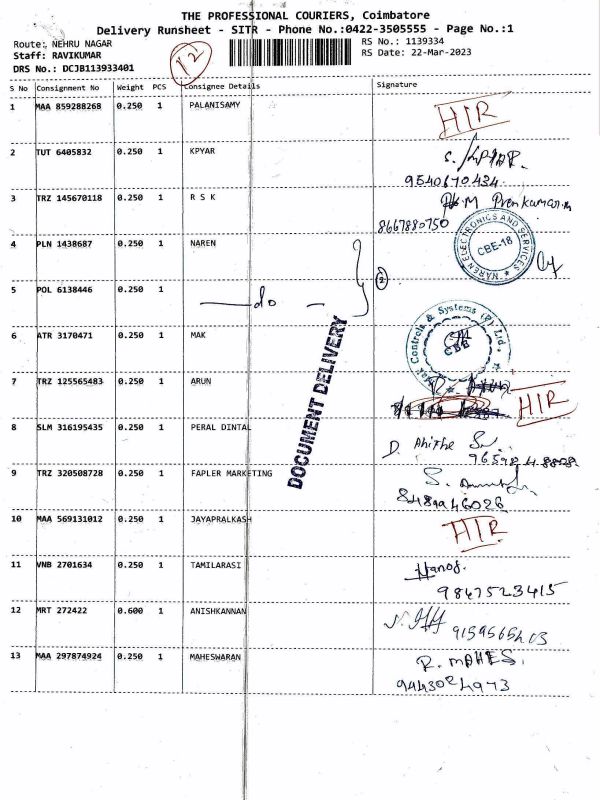 THE PROFESSIONAL COURIERS, Coimbatore
Delivery Runsheet - SITR - Phone No.:0422-3505555 - Page No.:1
Route: NEHRU NAGAR
RS No.: 1139334
Staff: RAVIKUMAR
RS Date: 22-Mar-2023
DRS No.: DCJB113933401
12
S No Consignment No Weight PCS Consignee Details Signature
1 MAA 859288268 0.250 1 PALANISAMY HIR
2 TUT 6405832 0.250 1 KPYAR
9540670434
3 TRZ 145670118 0.250 1 R S K
8667880750
4 PLN 1438687 0.250 1 NAREN
NAREN ELECTRONICS AND SERVICES
CBE-18
2
5 POL 6138446 0.250 1 do
6 ATR 3170471 0.250 1 MAK
Mak Controls & Systems (P) Ltd.,
CBE
DOCUMENT DELIVERY
7 TRZ 125565483 0.250 1 ARUN HIR
8 SLM 316195435 0.250 1 PERAL DINTAL
9 TRZ 320508728 0.250 1 FAPLER MARKETING
8489946026
10 MAA 569131012 0.250 1 JAYAPRALKASH HIR
11 VNB 2701634 0.250 1 TAMILARASI
9847523415
12 MRT 272422 0.600 1 ANISHKANNAN
13 MAA 297874924 0.250 1 MAHESWARAN R. MAHES.
9443024973